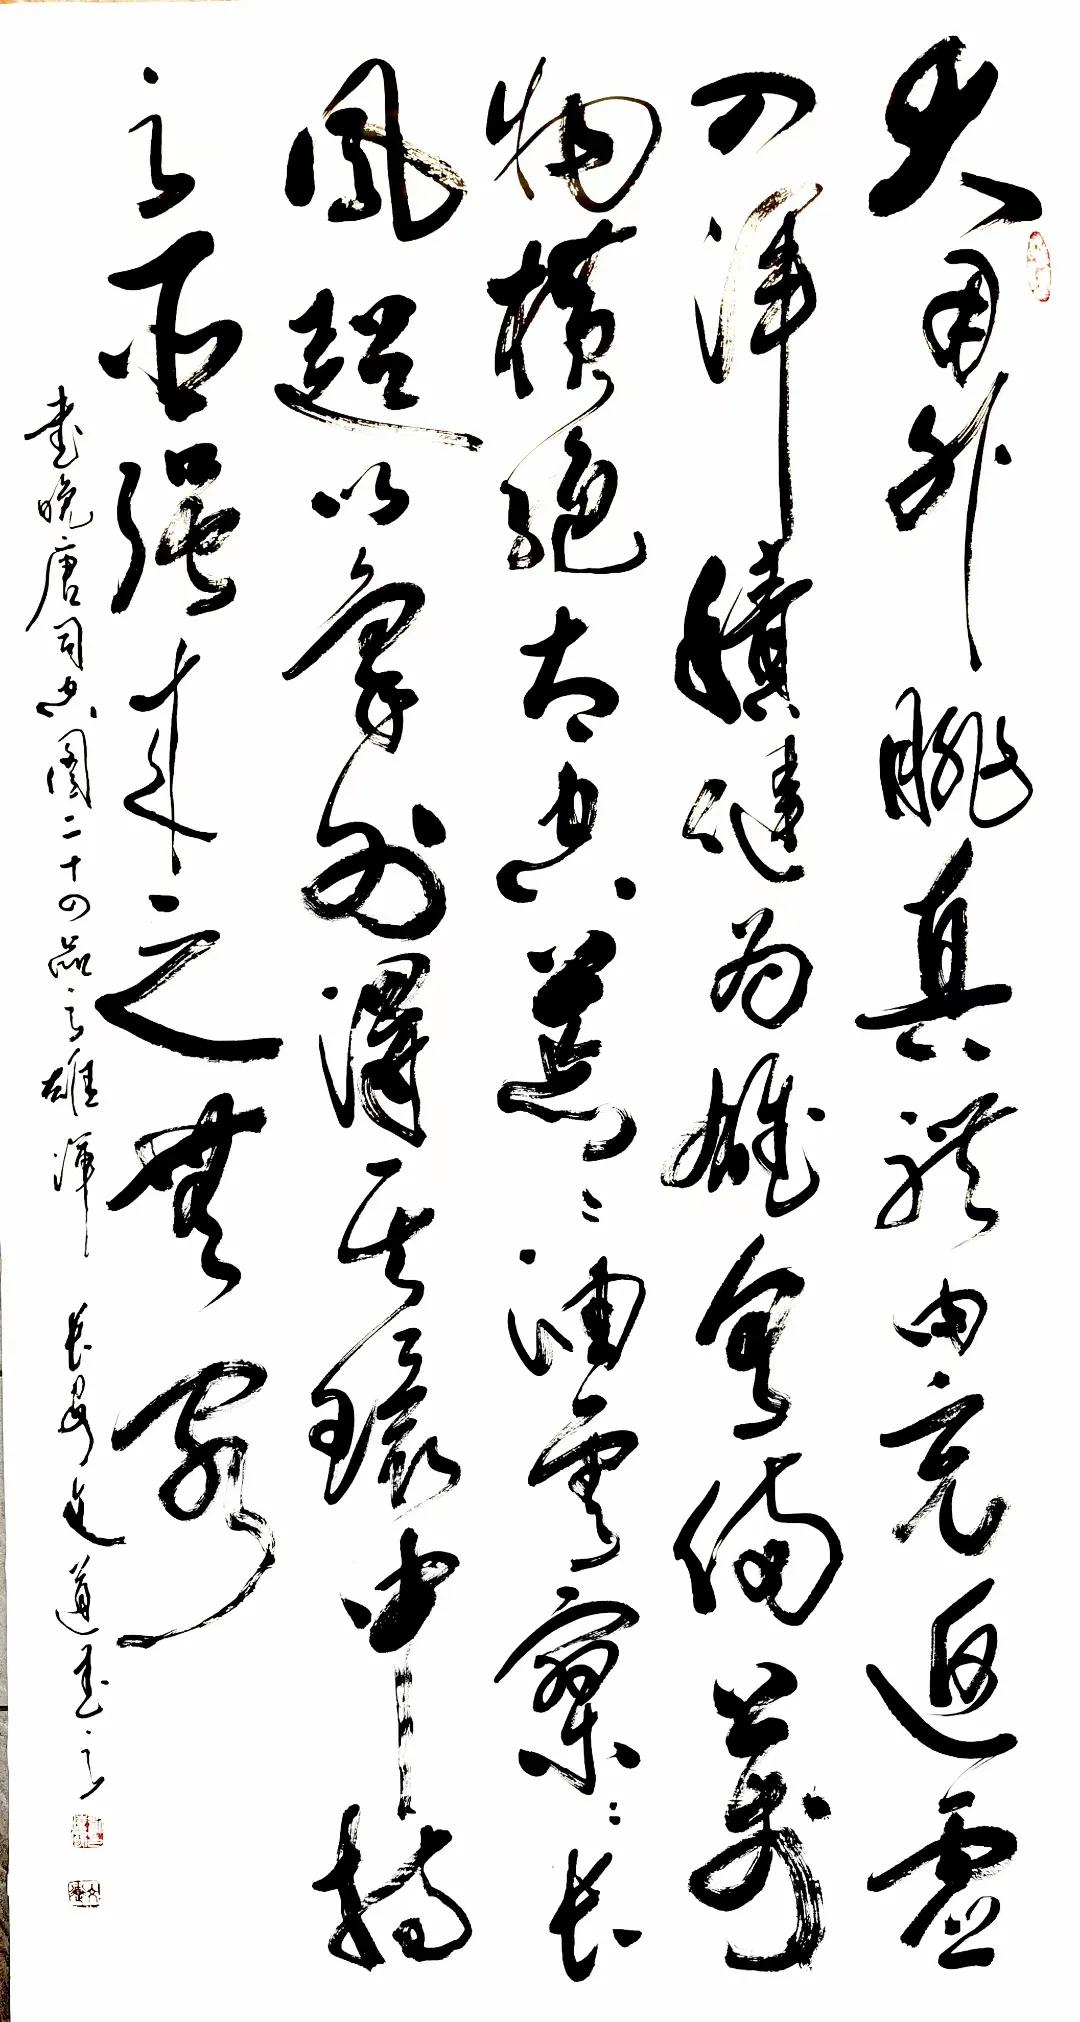 大用外腓真體内充返虚
入渾積健為雄具備萬
物橫絕太空荒〻油雲寥〻长
風超以象外得其環中持
之匪强来之無窮
書晚唐司空图二十四品之雄渾 长安文道書之